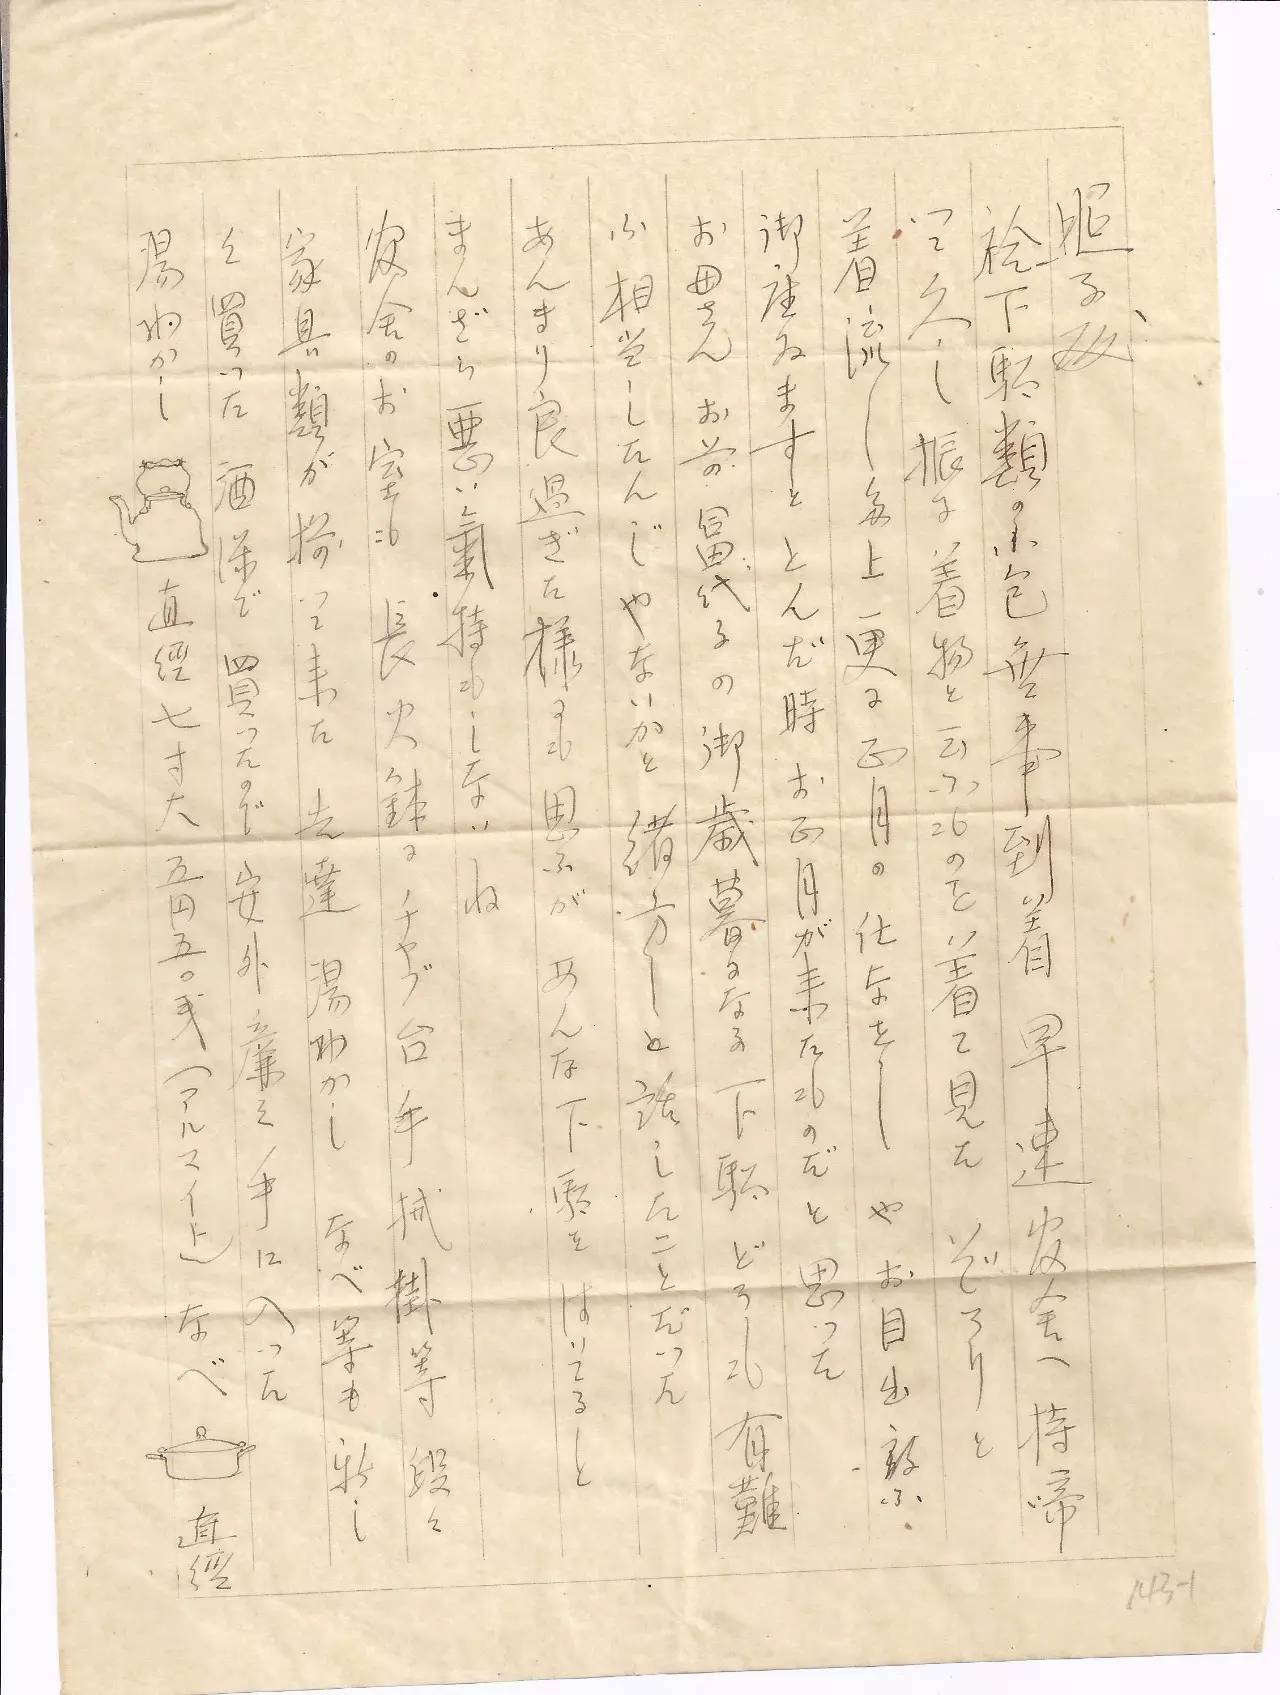 昭子殿
袷下駄類の小包無事到着 早速官舎へ持帰
って久し振に着物と云ふものを着て見た ぞろりと
着流した上更に正月の仕なをし や お目出敬ふ
御座ゐますと とんだ時お正月が来たものだと思った
お母さん お前 冨代子の御歳暮なる下駄どうも有難
ふ 相当したんじやないかと緒方しと話したことだった
あんまり良過ぎた様にも思ふが あんな下駄をはいてると
まんざら悪い氣持もしないね
官舎のお室も 長火鉢にチャブ台手拭掛等段々
家具類が揃って来た 先達湯わかし なべ等も新し
く買った 酒保で買ったので安外廉く手に入った
湯わかし 直經七寸大 五円五〇戋(アルマイト) なべ 直經
143-1